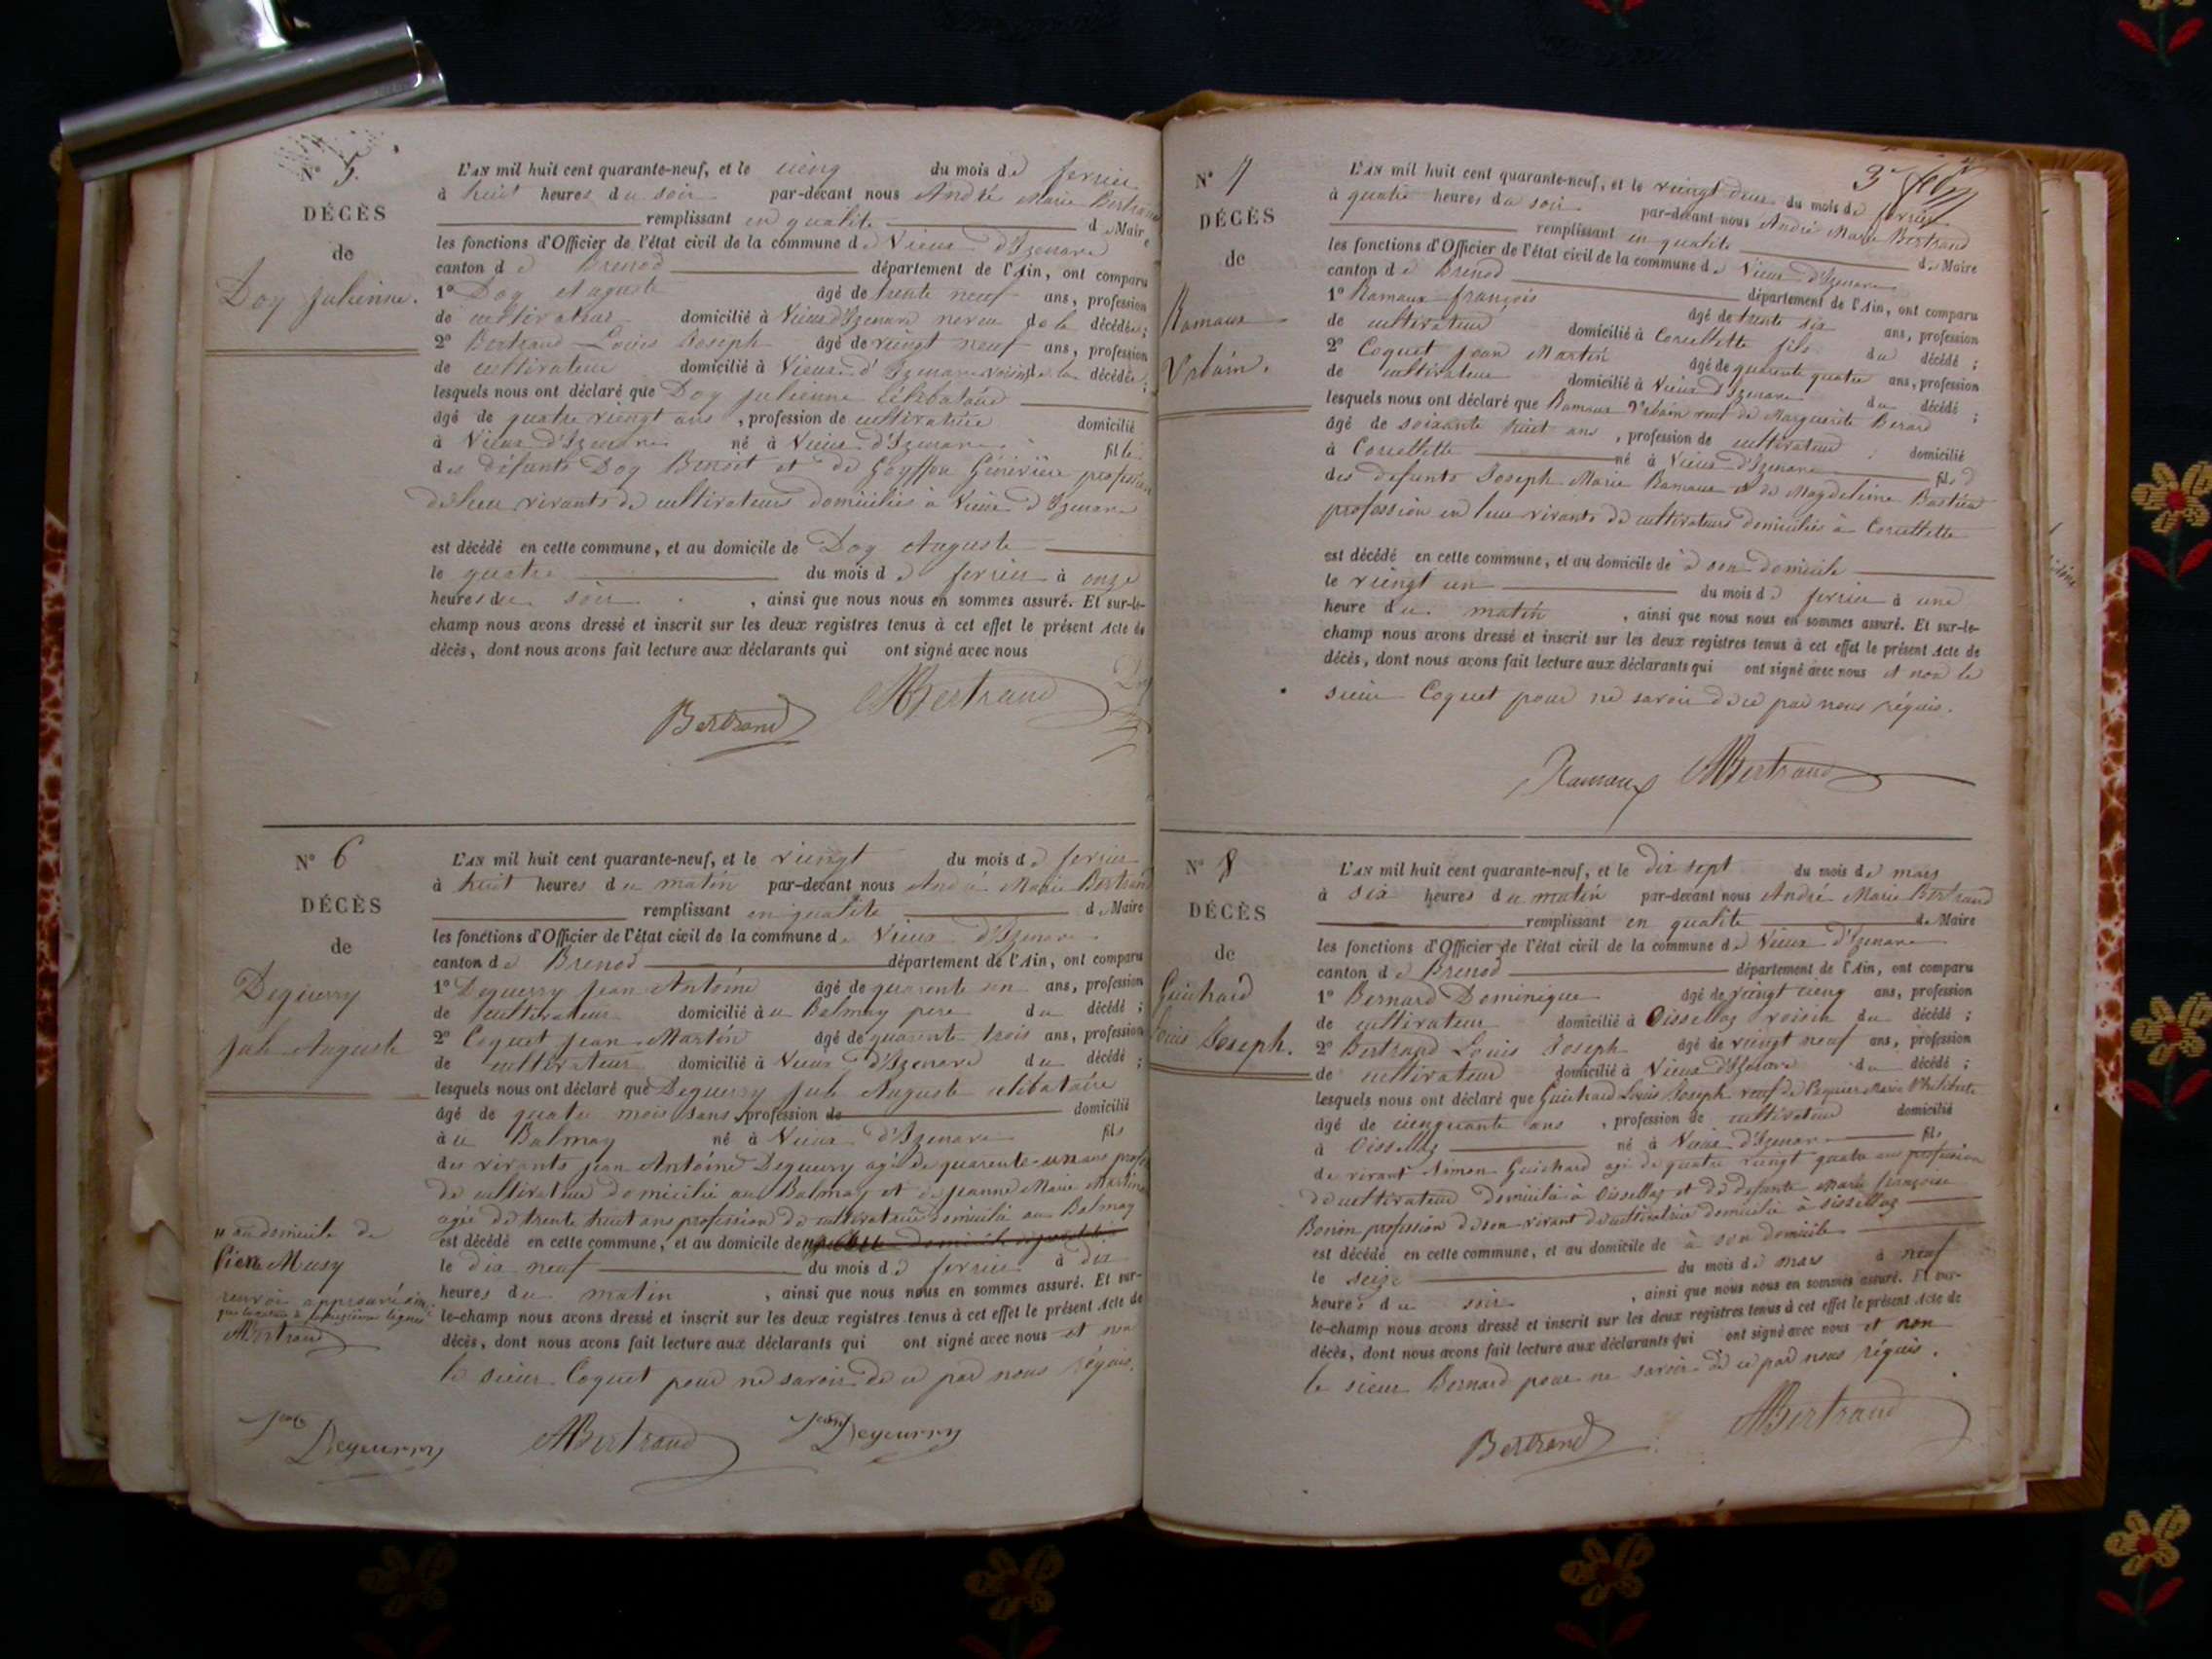 N° 5.
DÉCÈS
de
Doy Julienne.
L'AN mil huit cent quarante-neuf, et le cinq du mois de fevrier
à huit heures du soir par-devant nous André Marie Bertrand
remplissant en qualité de Maire
les fonctions d'Officier de l'état civil de la commune de Vieux d'Izenave
canton de Brenod département de l'Ain, ont comparu
1° Doy Auguste âgé de trente neuf ans, profession
de cultivateur domicilié à Vieux d'Izenave neveu de la décédée;
2° Bertrand Louis Joseph âgé de vingt neuf ans, profession
de cultivateur domicilié à Vieux d'Izenave voisin de la décédée;
lesquels nous ont déclaré que Doy Julienne Célibataire
âgé de quatre vingt ans, profession de cultivatrice domicilié
à Vieux d'Izenave né à Vieux d'Izenave fille
des défunts Doy Benoit et de Goyffon Généviève profession
de leur vivants de cultivateurs domiciliés à Vieux d'Izenave
est décédé en cette commune, et au domicile de Doy Auguste
le quatre du mois de fevrier à onze
heures du soir, ainsi que nous nous en sommes assuré. Et sur-le-
champ nous avons dressé et inscrit sur les deux registres tenus à cet effet le présent Acte de
décès, dont nous avons fait lecture aux déclarants qui ont signé avec nous
Bertrand AMBertrand
N° 6
DÉCÈS
de
Deguerry
Jule Auguste
L'AN mil huit cent quarante-neuf, et le vingt du mois de fevrier
à huit heures du matin par-devant nous André Marie Bertrand
remplissant en qualité de Maire
les fonctions d'Officier de l'état civil de la commune de Vieux d'Izenave
canton de Brenod département de l'Ain, ont comparu
1° Deguerry Jean Antoine âgé de quarente un ans, profession
de cultivateur domicilié à u Balmay pere du décédé;
2° Coquet Jean Martin âgé de quarente trois ans, profession
de cultivateur domicilié à Vieux d'Izenave du décédé;
lesquels nous ont déclaré que Deguerry Jule Auguste célibataire
âgé de quatre mois sans profession de domicilié
à u Balmay né à Vieux d'Izenave fils
des vivants Jean Antoine Deguerry agé de quarente-un ans profes
de cultivateur domicilié au Balmay et de Jeanne Marie Martin
agée de trente huit ans profession de cultivatrice domicilié au Balmay
est décédé en cette commune, et au domicile de
le dix neuf du mois de fevrier à dix
heures du matin, ainsi que nous nous en sommes assuré. Et sur-
le-champ nous avons dressé et inscrit sur les deux registres tenus à cet effet le présent Acte de
décès, dont nous avons fait lecture aux déclarants qui ont signé avec nous et non
le sieur Coquet pour ne savoir de ce par nous réquis.
" au domicile de
Musy
renvoi approuvé
AMBertrand
Jean Deguerry AMBertrand Jean Deguerry
3
N° 7
DÉCÈS
de
Ramaux
Urbain.
L'AN mil huit cent quarante-neuf, et le vingt deux du mois de fevrier
à quatre heures du soir par-devant nous André Marie Bertrand
remplissant en qualité de Maire
les fonctions d'Officier de l'état civil de la commune de Vieux d'Izenave
canton de Brenod département de l'Ain, ont comparu
1° Ramaux françois âgé de trente six ans, profession
de cultivateur domicilié à Corcellette fils du décédé;
2° Coquet Jean Martin âgé de quarente quatre ans, profession
de cultivateur domicilié à Vieux d'Izenave du décédé;
lesquels nous ont déclaré que Ramaux Urbain veuf de Marguerite Berard
âgé de soixante huit ans, profession de cultivateur domicilié
à Corcellette né à Vieux d'Izenave fils
des defunts Joseph Marie Ramaux et de Magdeleine Bastien
profession en leur vivants de cultivateurs domiciliés à Corcellette
est décédé en cette commune, et au domicile de à son domicile
le vingt un du mois de fevrier à une
heure du matin, ainsi que nous nous en sommes assuré. Et sur-le-
champ nous avons dressé et inscrit sur les deux registres tenus à cet effet le présent Acte de
décès, dont nous avons fait lecture aux déclarants qui ont signé avec nous et non le
sieur Coquet pour ne savoir de ce par nous réquis.
Ramaux AMBertrand
N° 8
DÉCÈS
de
Guichard
Louis Joseph.
L'AN mil huit cent quarante-neuf, et le dix sept du mois de mars
à six heures du matin par-devant nous André Marie Bertrand
remplissant en qualité de Maire
les fonctions d'Officier de l'état civil de la commune de Vieux d'Izenave
canton de Brenod département de l'Ain, ont comparu
1° Bernard Dominique âgé de vingt cinq ans, profession
de cultivateur domicilié à Oissellaz voisin du décédé;
2° Bertrand Louis Joseph âgé de vingt neuf ans, profession
de cultivateur domicilié à Vieux d'Izenave du décédé;
lesquels nous ont déclaré que Guichard Louis Joseph veuf de Marie Philiberte
âgé de cinquante ans, profession de cultivateur domicilié
à Oissellaz né à Vieux d'Izenave fils
de vivant Simon Guichard agé de quatre vingt quatre ans profession
de cultivateur domicilié à Oissellaz et de defunte Marie françoise
profession de son vivant de cultivatrice domicilié à Oissellaz
est décédé en cette commune, et au domicile de à son domicile
le seize du mois de mars à neuf
heures du soir, ainsi que nous nous en sommes assuré. Et sur-
le-champ nous avons dressé et inscrit sur les deux registres tenus à cet effet le présent Acte de
décès, dont nous avons fait lecture aux déclarants qui ont signé avec nous et non
le sieur Bernard pour ne savoir de ce par nous réquis.
Bertrand AMBertrand